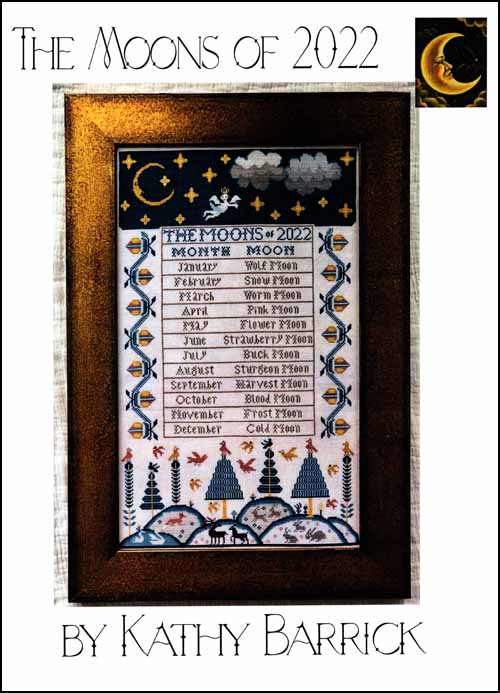 The Moons of 2022
THE MOONS OF 2022
MONTH MOON
January Wolf Moon
February Snow Moon
March Worm Moon
April Pink Moon
May Flower Moon
June Strawberry Moon
July Buck Moon
August Sturgeon Moon
September Harvest Moon
October Blood Moon
November Frost Moon
December Cold Moon
by Kathy Barrick